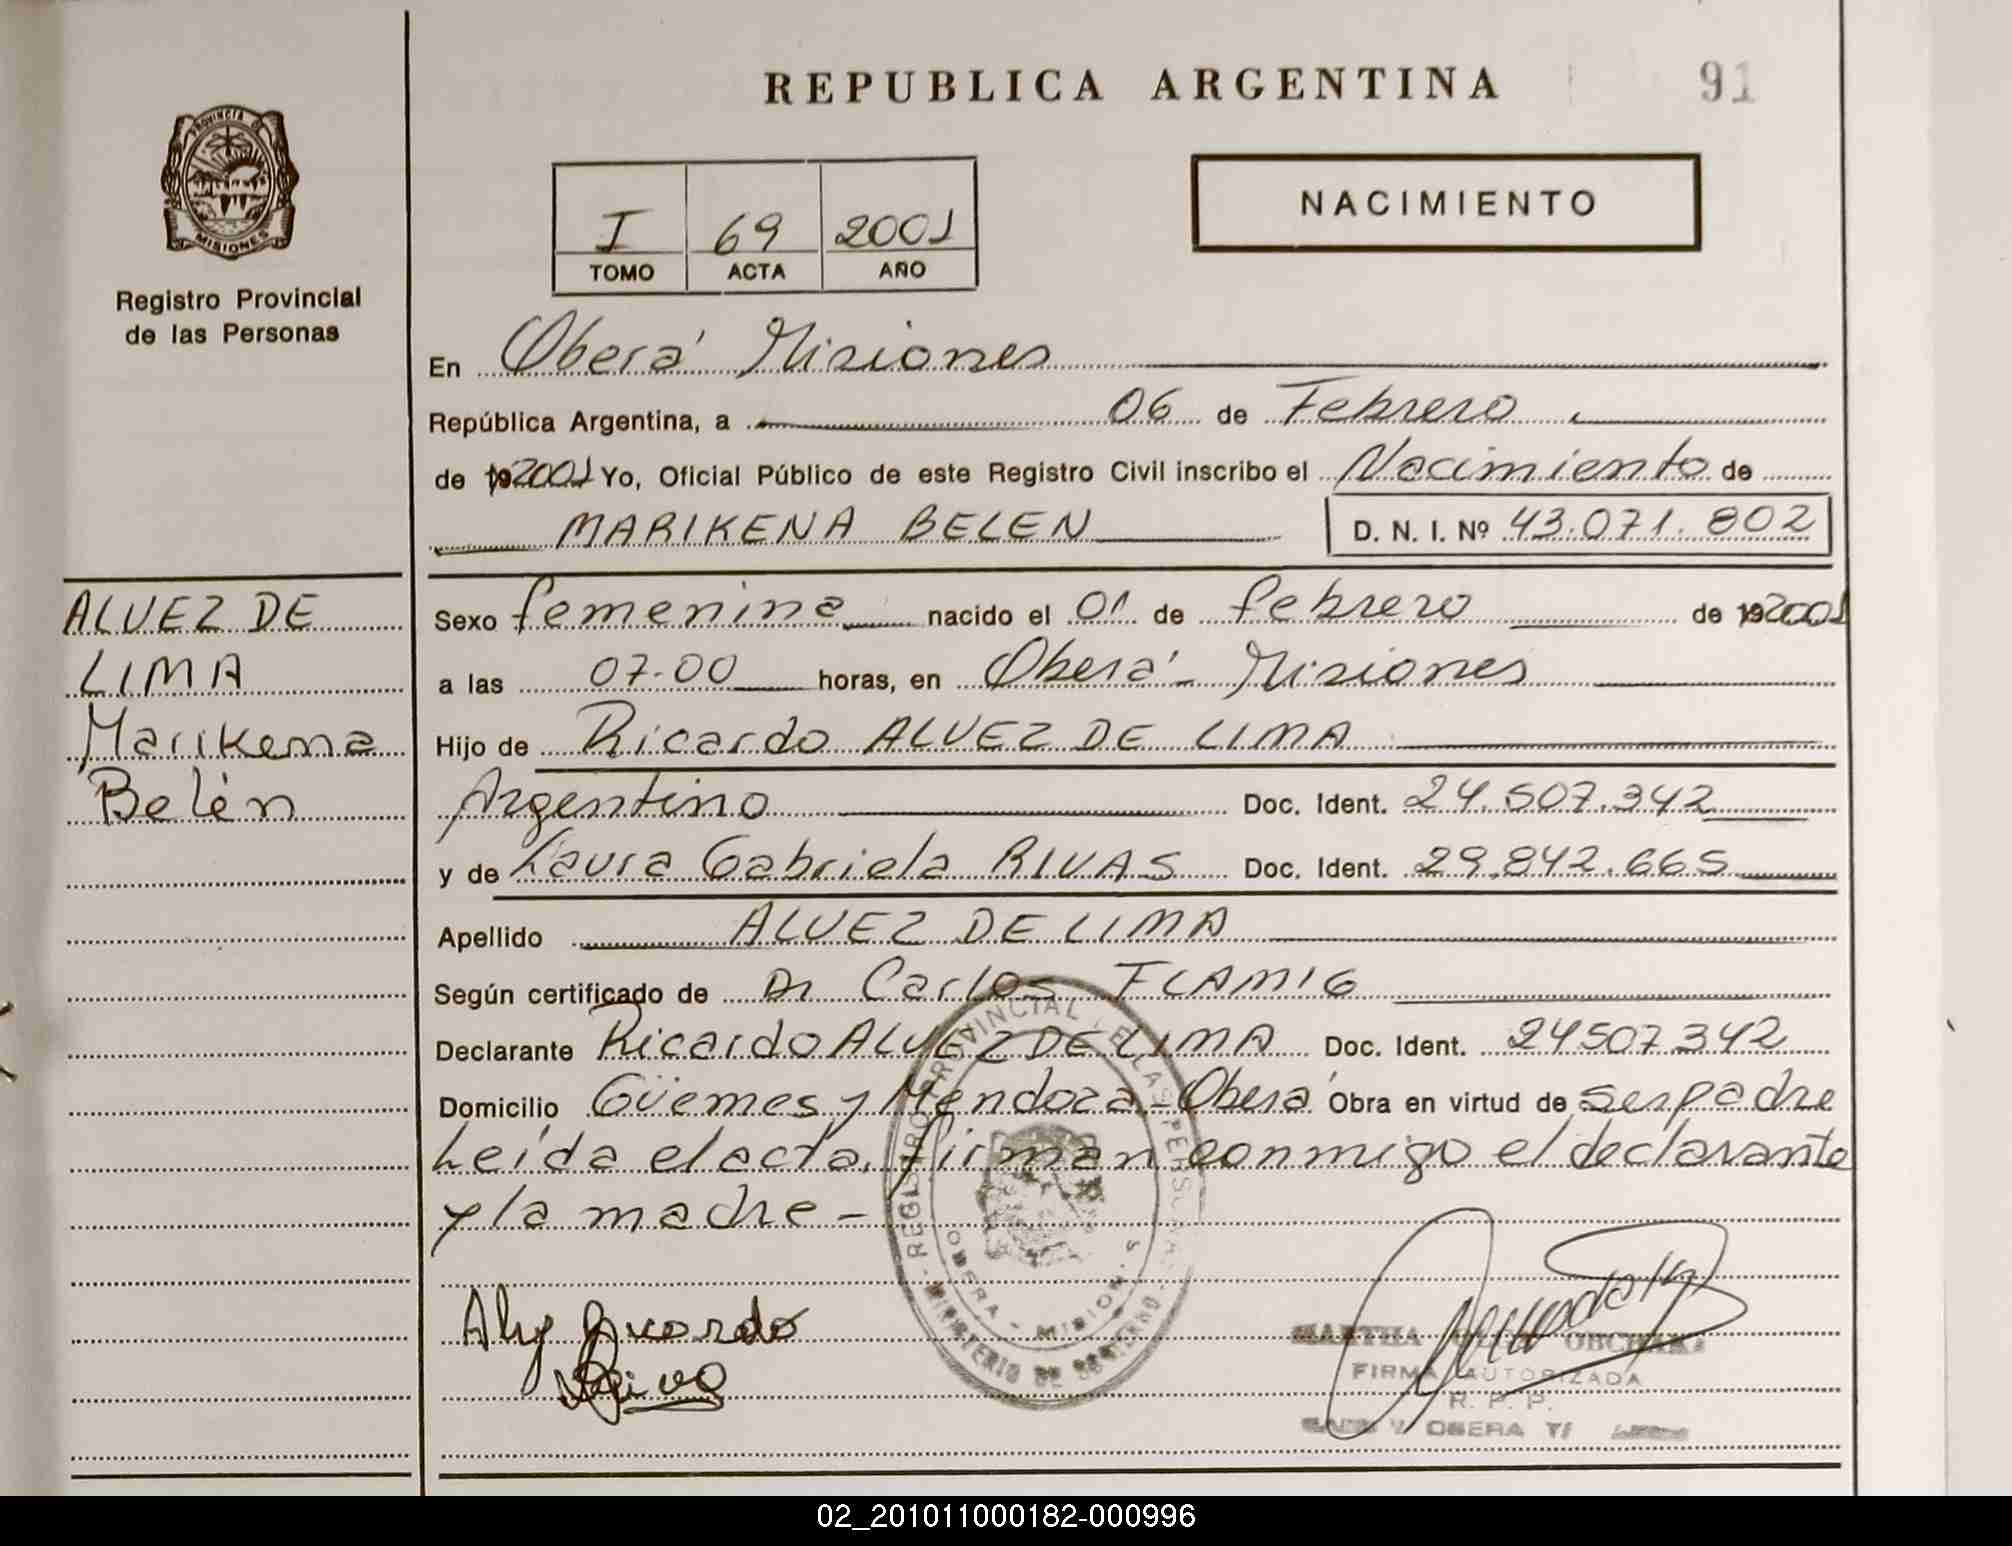 REPUBLICA ARGENTINA
91
PROVINCIA DE
MISIONES
Registro Provincial
de las Personas
I 69 2001
TOMO ACTA AÑO
NACIMIENTO
En Oberá Misiones
República Argentina, a 06 de Febrero
de 192001 Yo, Oficial Público de este Registro Civil inscribo el Nacimiento de
MARIKENA BELEN D. N. I. Nº 43.071.802
ALVEZ DE
LIMA
Marikena
Belén
Sexo femenina nacido el 01 de febrero de 192001
a las 07.00 horas, en Oberá - Misiones
Hijo de Ricardo ALVEZ DE LIMA
Argentino Doc. Ident. 24.507.342
y de Laura Gabriela RIVAS Doc. Ident. 29.842.665
Apellido ALVEZ DE LIMA
Según certificado de Dr Carlos FLAMIG
Declarante Ricardo ALVEZ DE LIMA Doc. Ident. 24507342
Domicilio Güemes y Mendoza - Oberá Obra en virtud de ser padre
Leída el acta, firman conmigo el declarante
y la madre -
REGISTRO PROVINCIAL DE LAS PERSONAS
OBERA - MISIONES
MINISTERIO DE GOBIERNO
MARTHA
FIRMA AUTORIZADA
R. P. P.
OBERA
02_201011000182-000996